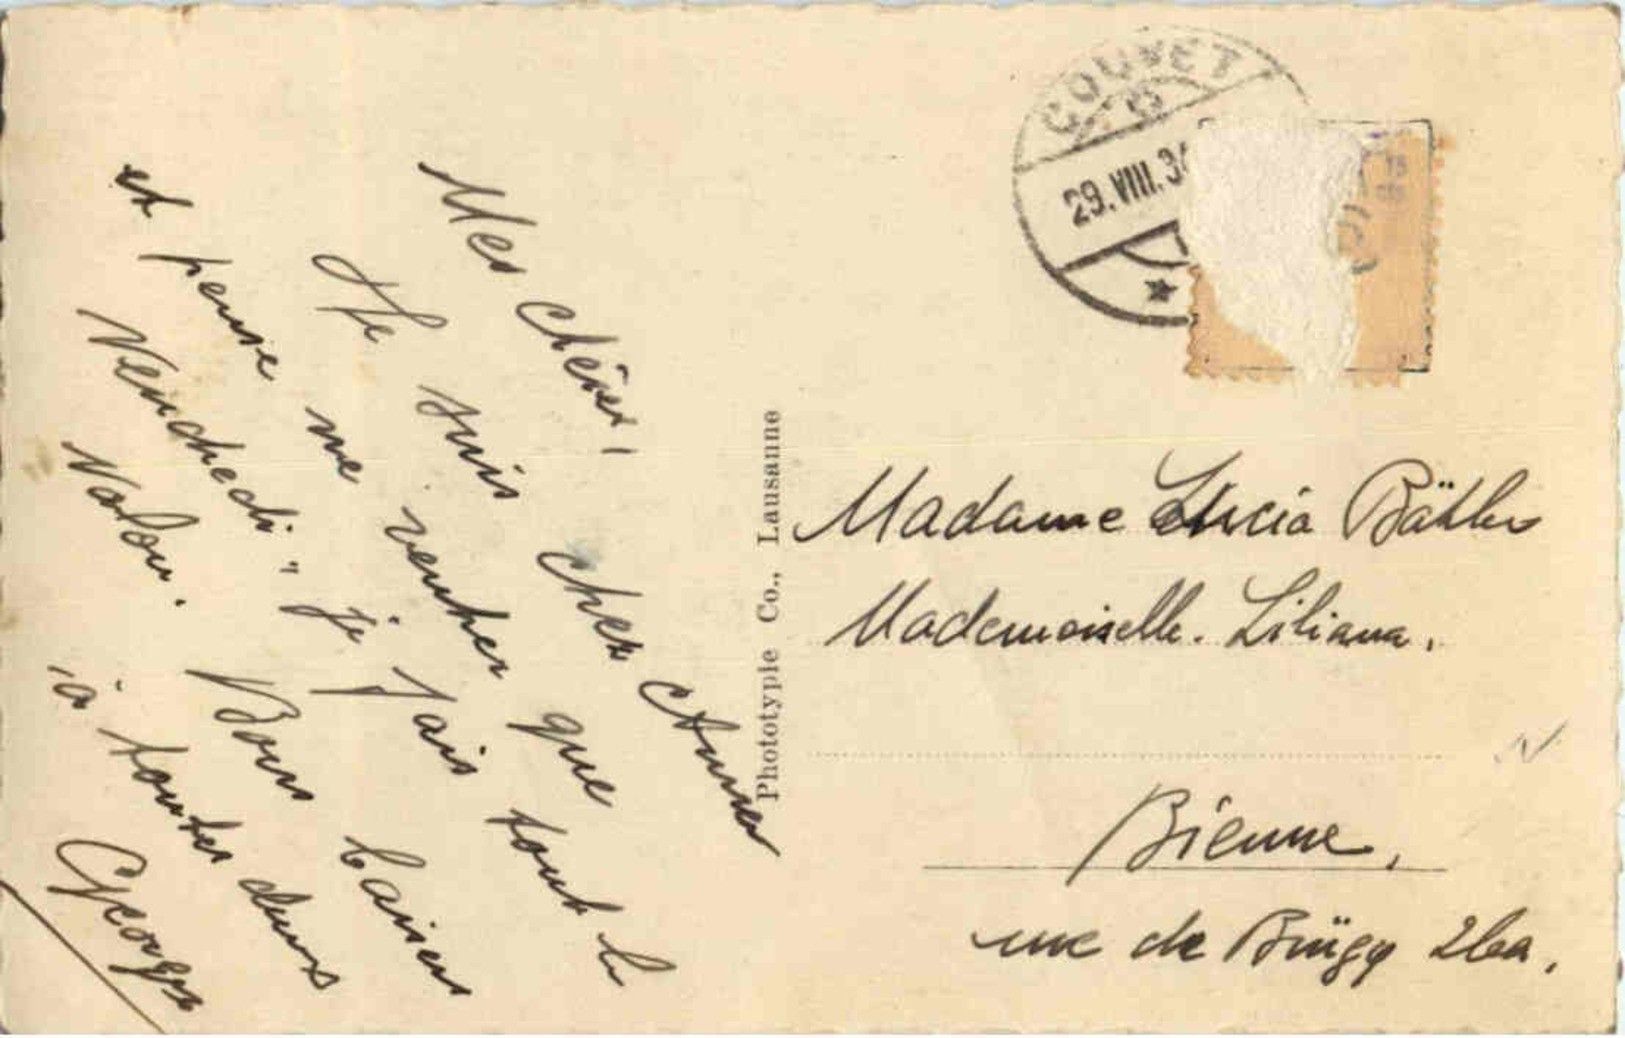 Mes chéris,
Je suis chez
et pense me rentrer que
Vendredi, je fais tout le
Valon.
Bons baisers
à toutes deux
Georges
Phototypie Co., Lausanne
COUVET
29.VIII.3
Madame Lucia Bähler
Mademoiselle. Liliana.
Bienne,
rue de Brügg 26a,